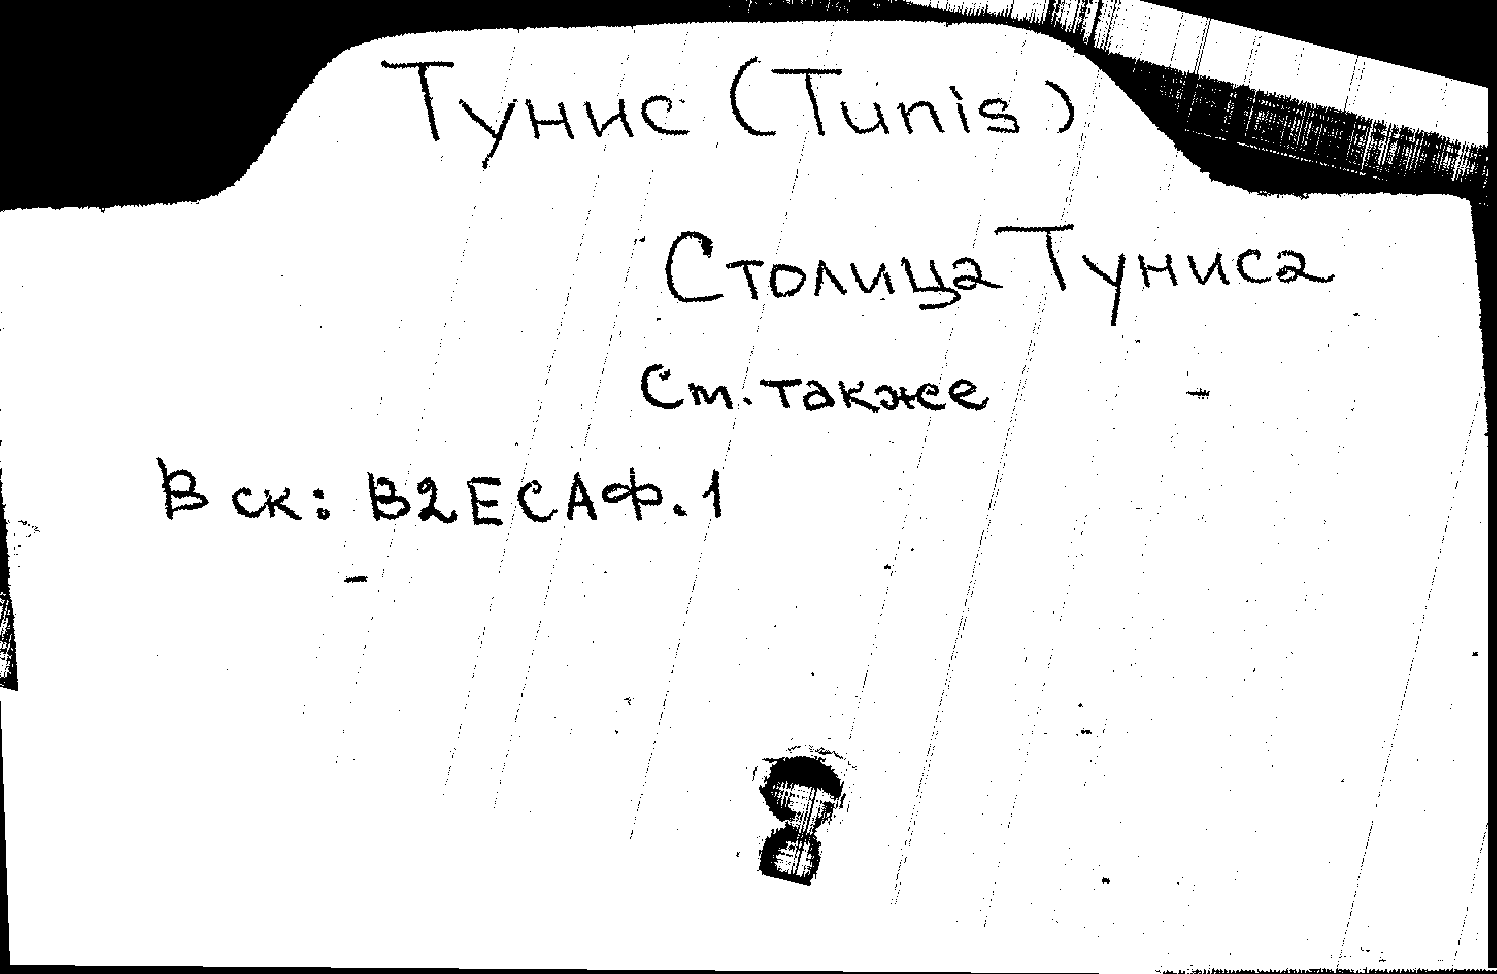 Тунис (Tunis)
Столица Туниса
См. также
В ск: В2ЕСАФ.1